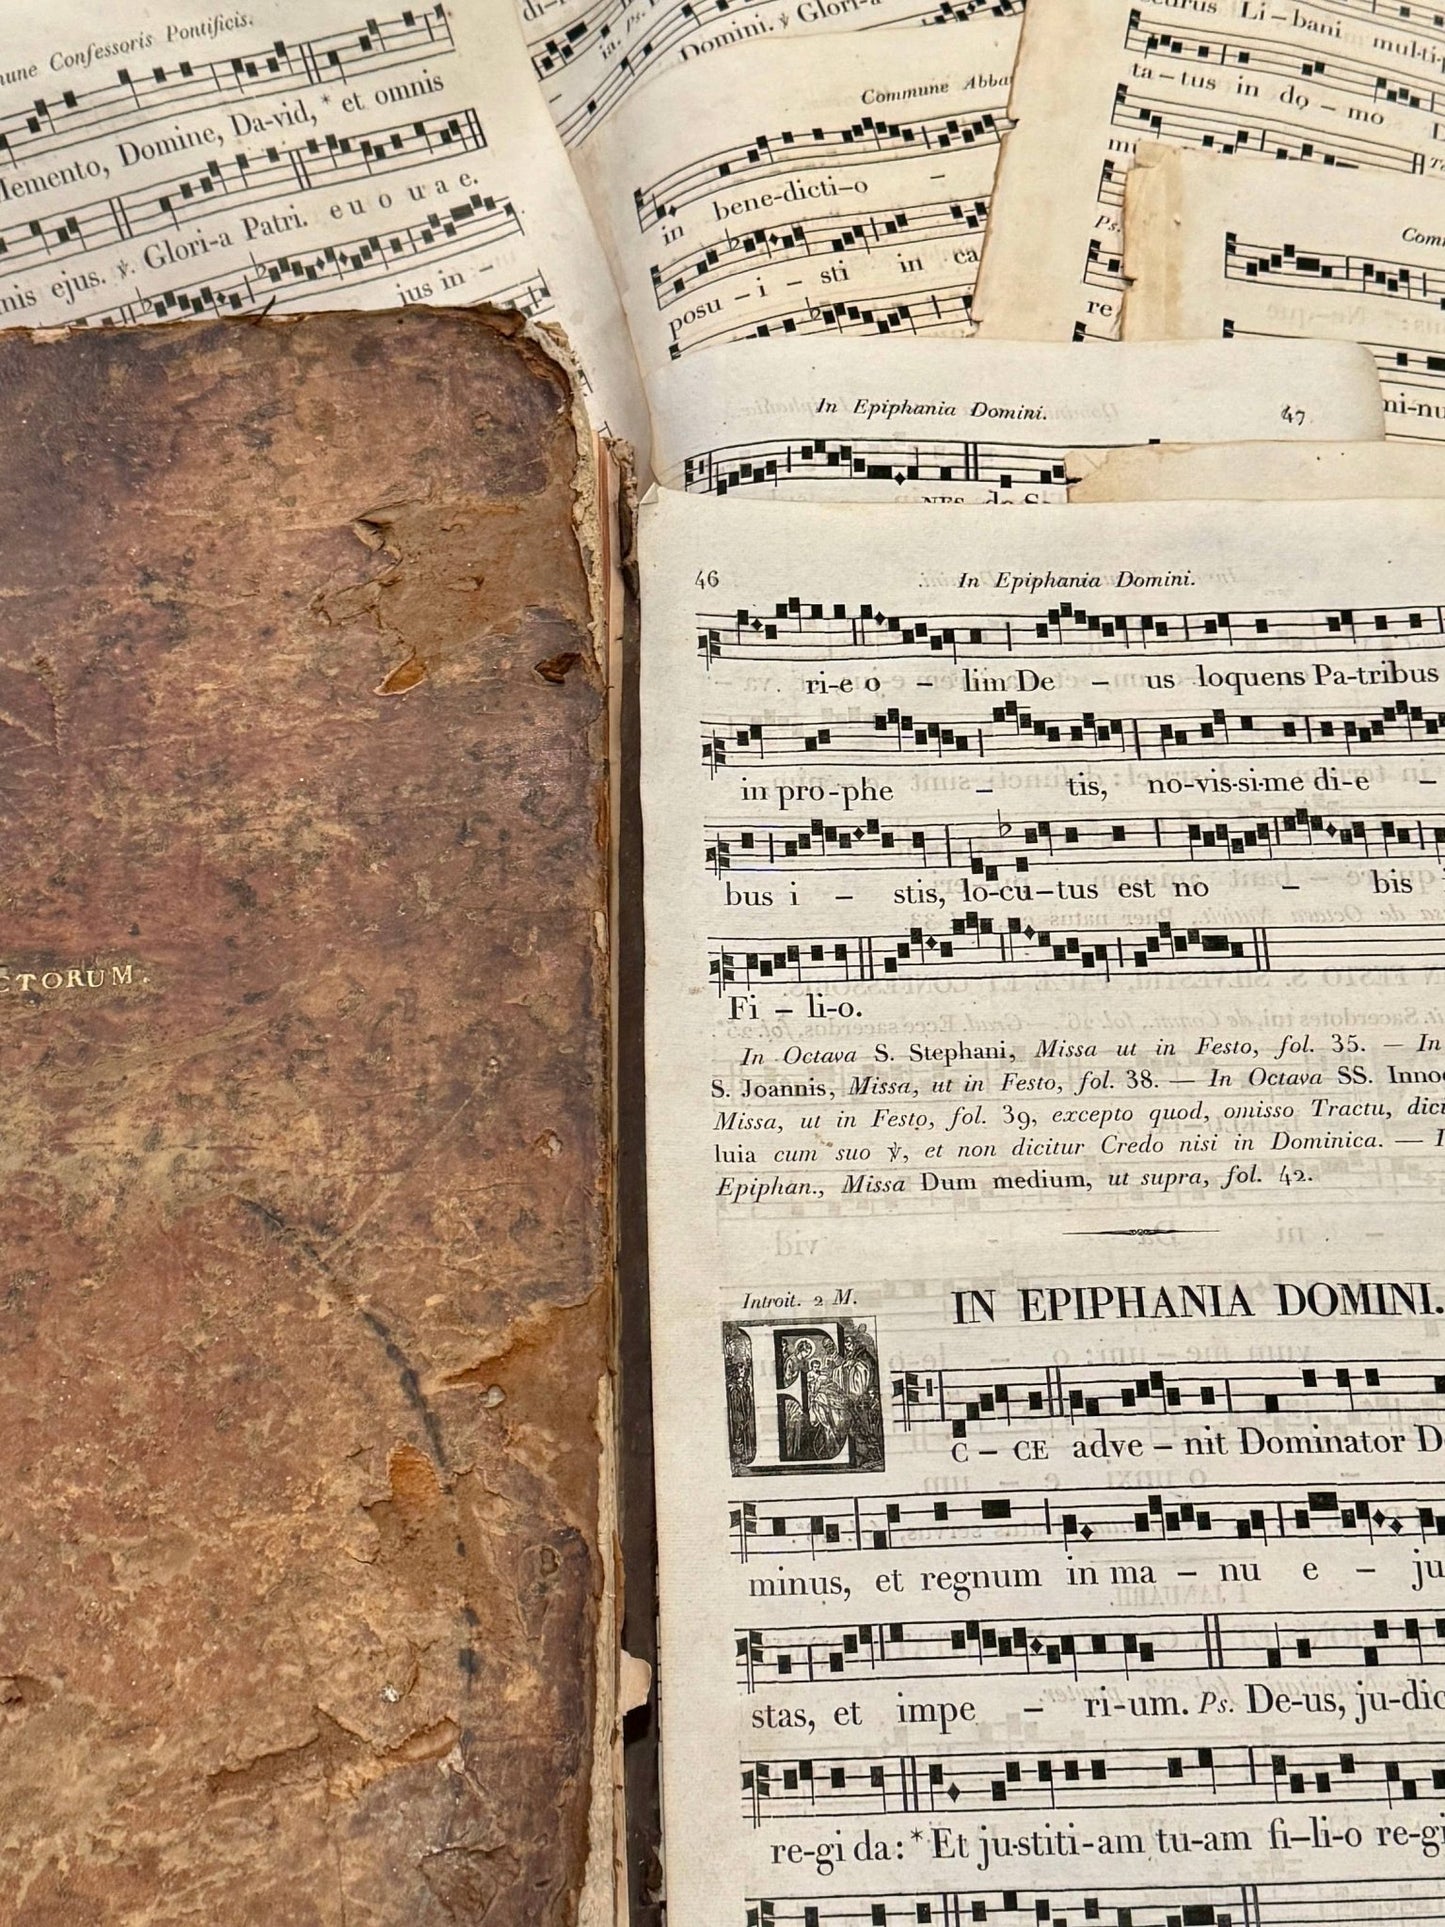 Confessoris Pontificis.
Memento, Domine, Da-vid, * et omnis
ejus. ℣. Glori-a Patri. e u o u a e.
jus in –
Domini. ℣ Glori-a
Commune
in bene-dicti-o –
posu – i – sti in ca
Li – bani
ta – tus in do – mo
Ps.
re
In Epiphania Domini. 47
CTORUM.
46 In Epiphania Domini.
ri-e o – lim De – us loquens Pa-tribus
in pro-phe – tis, no-vis-si-me di-e –
bus i – stis, lo-cu-tus est no – bis
Fi – li-o.
In Octava S. Stephani, Missa ut in Festo, fol. 35. — In
S. Joannis, Missa, ut in Festo, fol. 38. — In Octava SS.
Missa, ut in Festo, fol. 39, excepto quod, omisso Tractu,
luia cum suo ℣, et non dicitur Credo nisi in Dominica. —
Epiphan., Missa Dum medium, ut supra, fol. 42.
Introit. 2 M. IN EPIPHANIA DOMINI.
EC – CE adve – nit Dominator
minus, et regnum in ma – nu e – ju
stas, et impe – ri-um. Ps. De-us, ju-dic
re-gi da: * Et ju-stiti-am tu-am fi-li-o re-gi